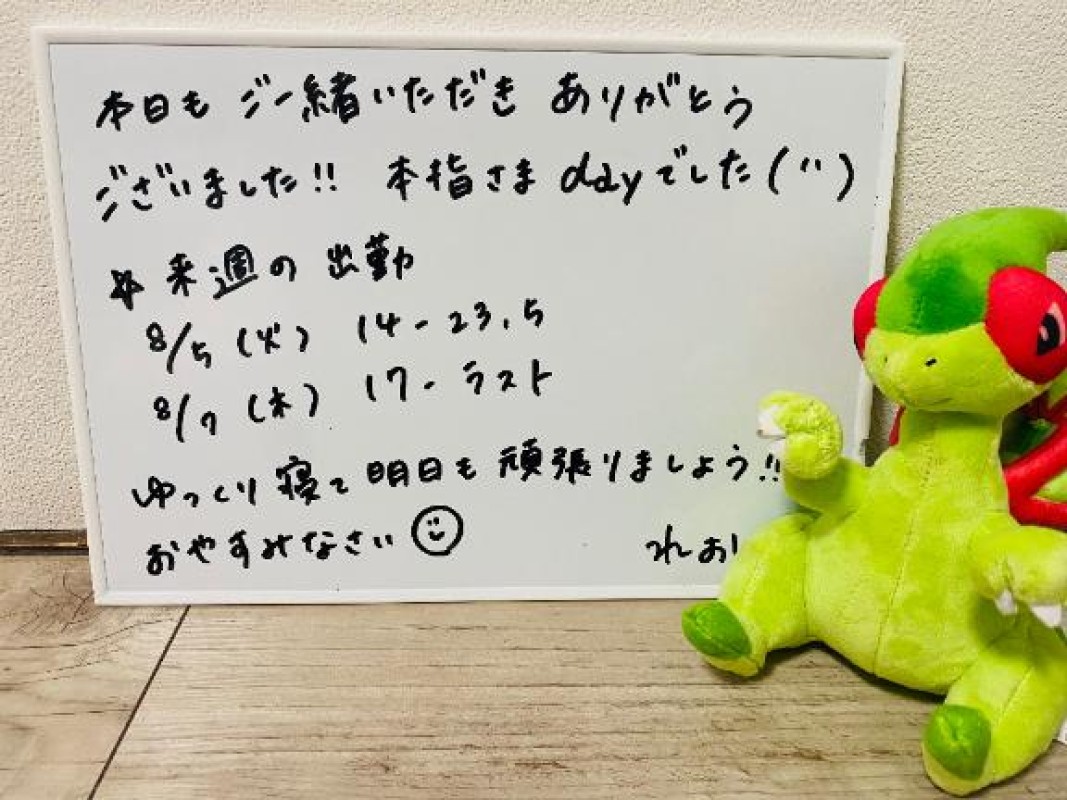 本日も ご一緒いただき ありがとう
ございました!! 本指さまdayでした(¨)
☆来週の出勤
8/5(火) 14-23.5
8/7(木) 17-ラスト
ゆっくり寝て明日も頑張りましょう!!
おやすみなさい